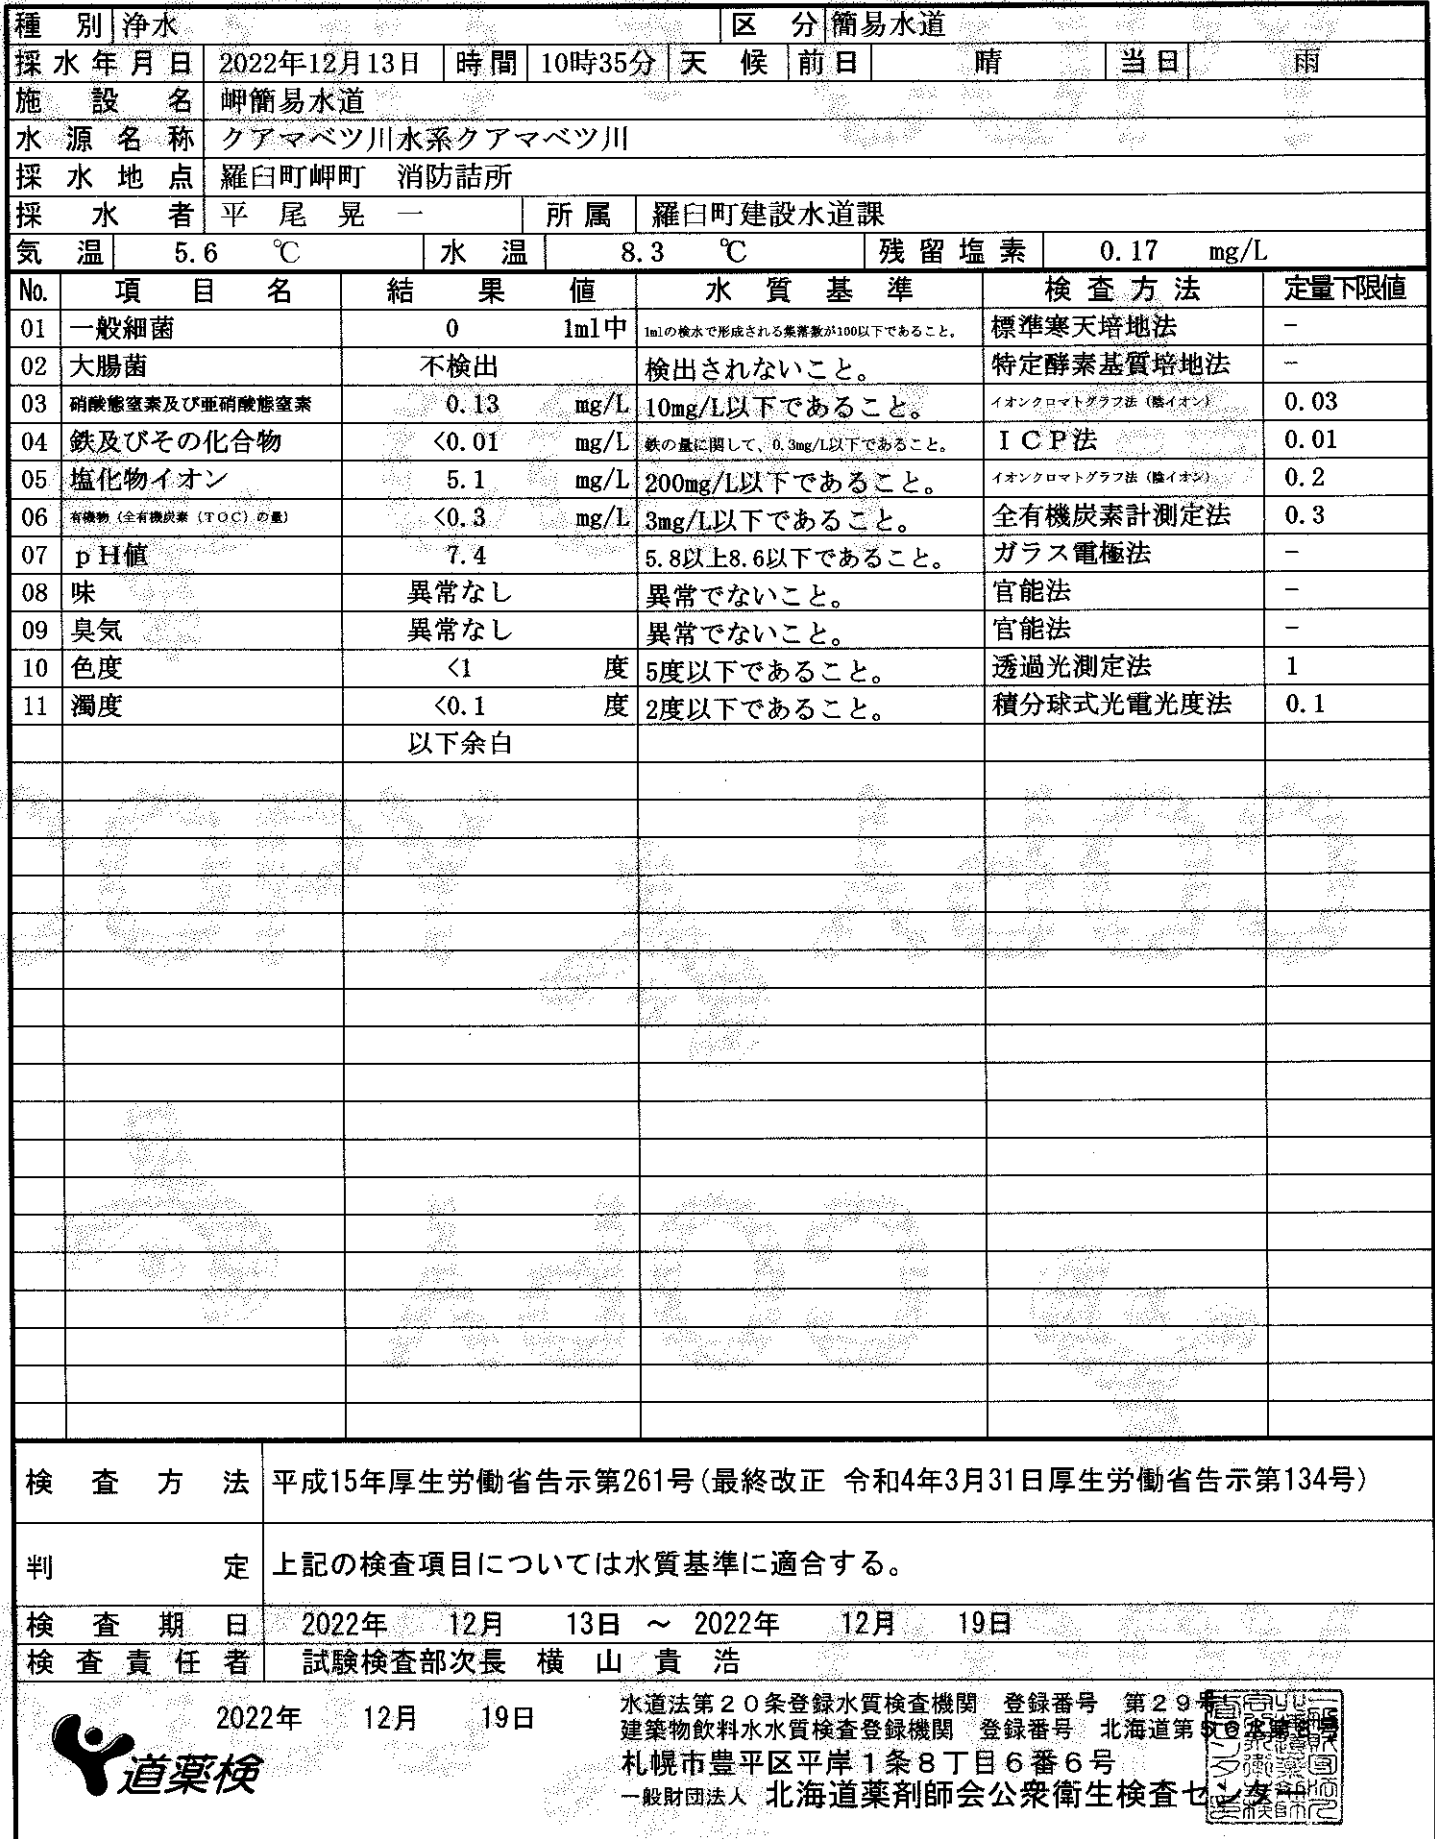 種別 浄水 区分 簡易水道
採水年月日 2022年12月13日 時間 10時35分 天候 前日 晴 当日 雨
施設名 岬簡易水道
水源名称 クアマベツ川水系クアマベツ川
採水地点 羅臼町岬町 消防詰所
採水者 平尾晃一 所属 羅臼町建設水道課
気温 5.6 ℃ 水温 8.3 ℃ 残留塩素 0.17 mg/L
No. 項目名 結果値 水質基準 検査方法 定量下限値
01 一般細菌 0 1ml中 1mlの検水で形成される集落数が100以下であること。 標準寒天培地法 −
02 大腸菌 不検出 検出されないこと。 特定酵素基質培地法 −
03 硝酸態窒素及び亜硝酸態窒素 0.13 mg/L 10mg/L以下であること。 イオンクロマトグラフ法（陰イオン） 0.03
04 鉄及びその化合物 <0.01 mg/L 鉄の量に関して、0.3mg/L以下であること。 ＩＣＰ法 0.01
05 塩化物イオン 5.1 mg/L 200mg/L以下であること。 イオンクロマトグラフ法（陰イオン） 0.2
06 有機物（全有機炭素（ＴＯＣ）の量） <0.3 mg/L 3mg/L以下であること。 全有機炭素計測定法 0.3
07 ｐＨ値 7.4 5.8以上8.6以下であること。 ガラス電極法 −
08 味 異常なし 異常でないこと。 官能法 −
09 臭気 異常なし 異常でないこと。 官能法 −
10 色度 <1 度 5度以下であること。 透過光測定法 1
11 濁度 <0.1 度 2度以下であること。 積分球式光電光度法 0.1
以下余白
検査方法 平成15年厚生労働省告示第261号(最終改正 令和4年3月31日厚生労働省告示第134号)
判定 上記の検査項目については水質基準に適合する。
検査期日 2022年 12月 13日 ～ 2022年 12月 19日
検査責任者 試験検査部次長 横山貴浩
2022年 12月 19日
水道法第２０条登録水質検査機関 登録番号 第２９号
建築物飲料水水質検査登録機関 登録番号 北海道第
札幌市豊平区平岸１条８丁目６番６号
一般財団法人 北海道薬剤師会公衆衛生検査センター
道薬検
COPY
COPY
COPY